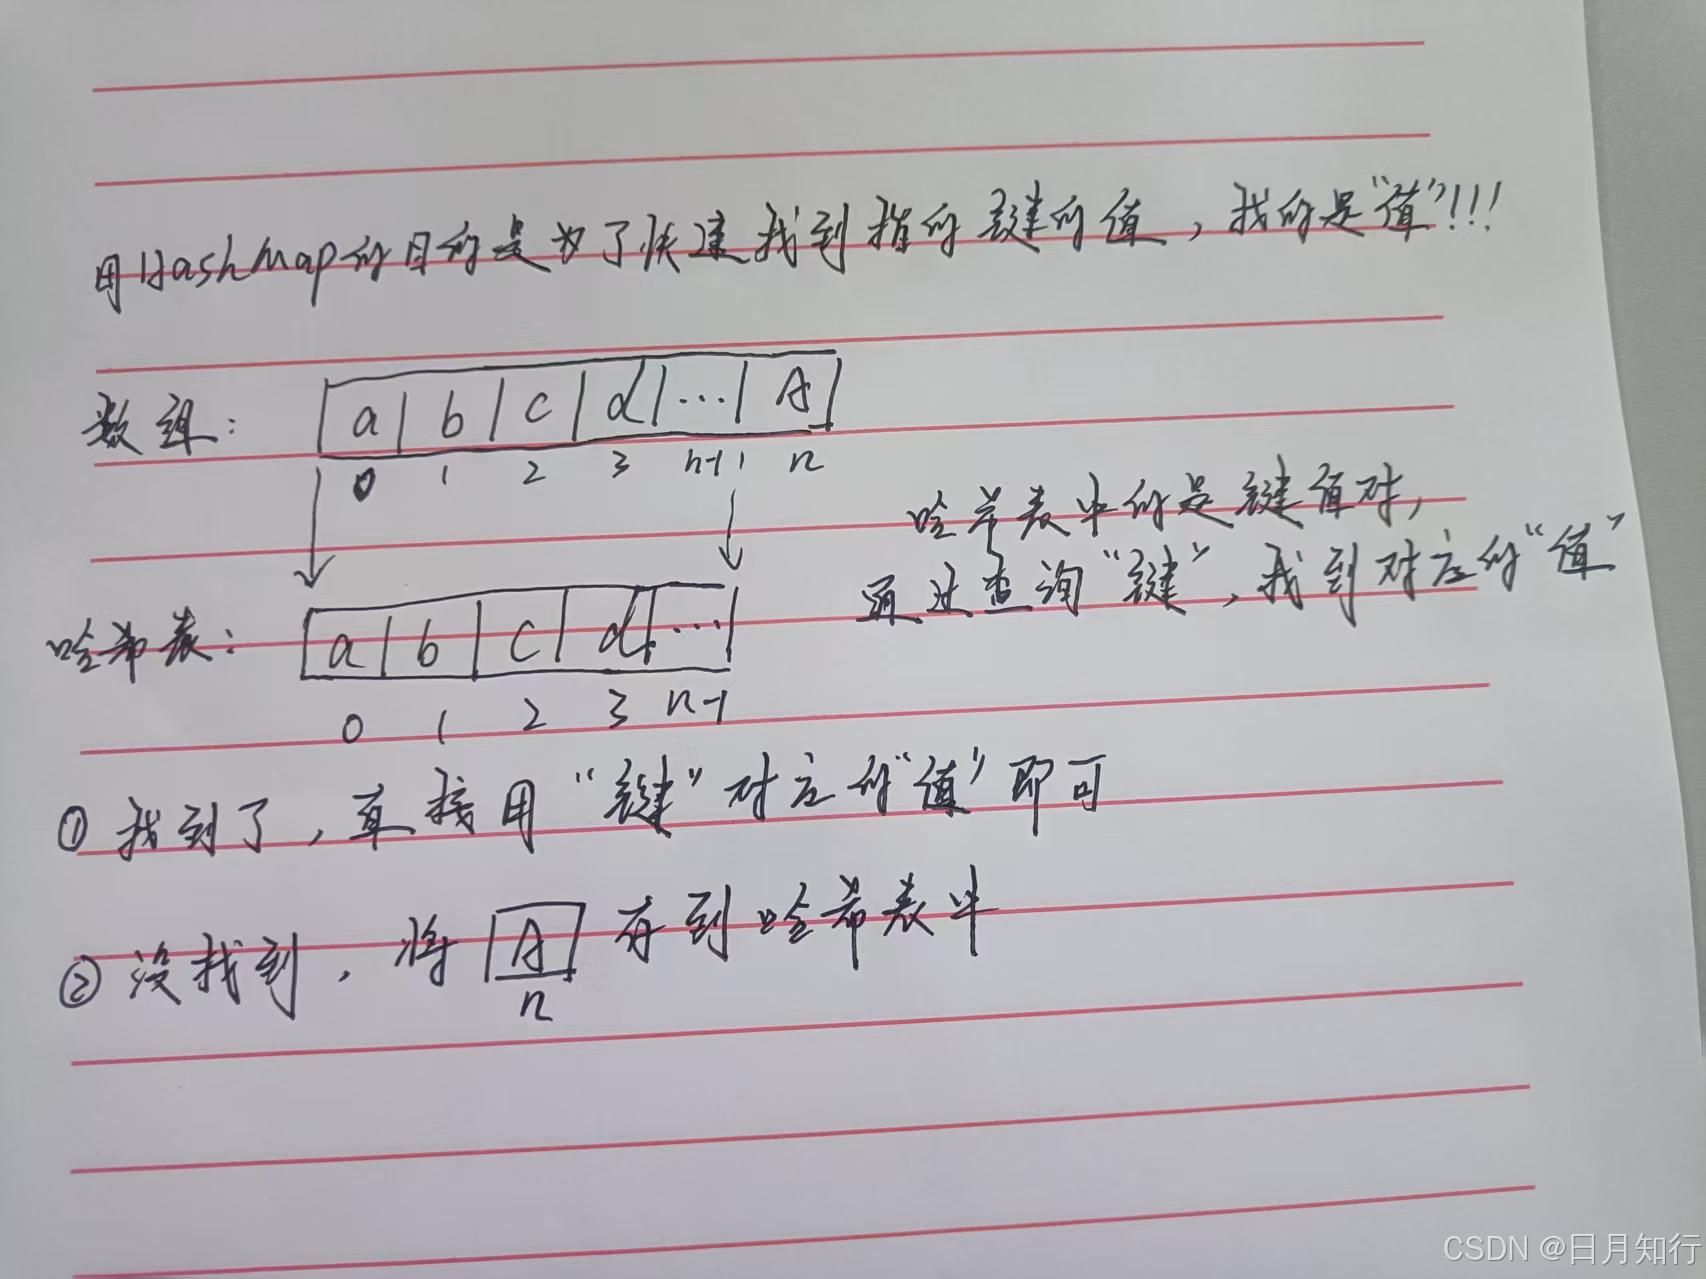 用HashMap的目的是为了快速找到指的键的值，我的是“值”!!!
数组：
a b c d ... A
0 1 2 3 n-1 n
哈希表中的是键值对，
通过查询“键”，找到对应的“值”
哈希表：
a b c d ...
0 1 2 3 n-1
① 找到了，直接用“键”对应的“值”即可
② 没找到，将 A 存到哈希表中
n
CSDN @日月知行